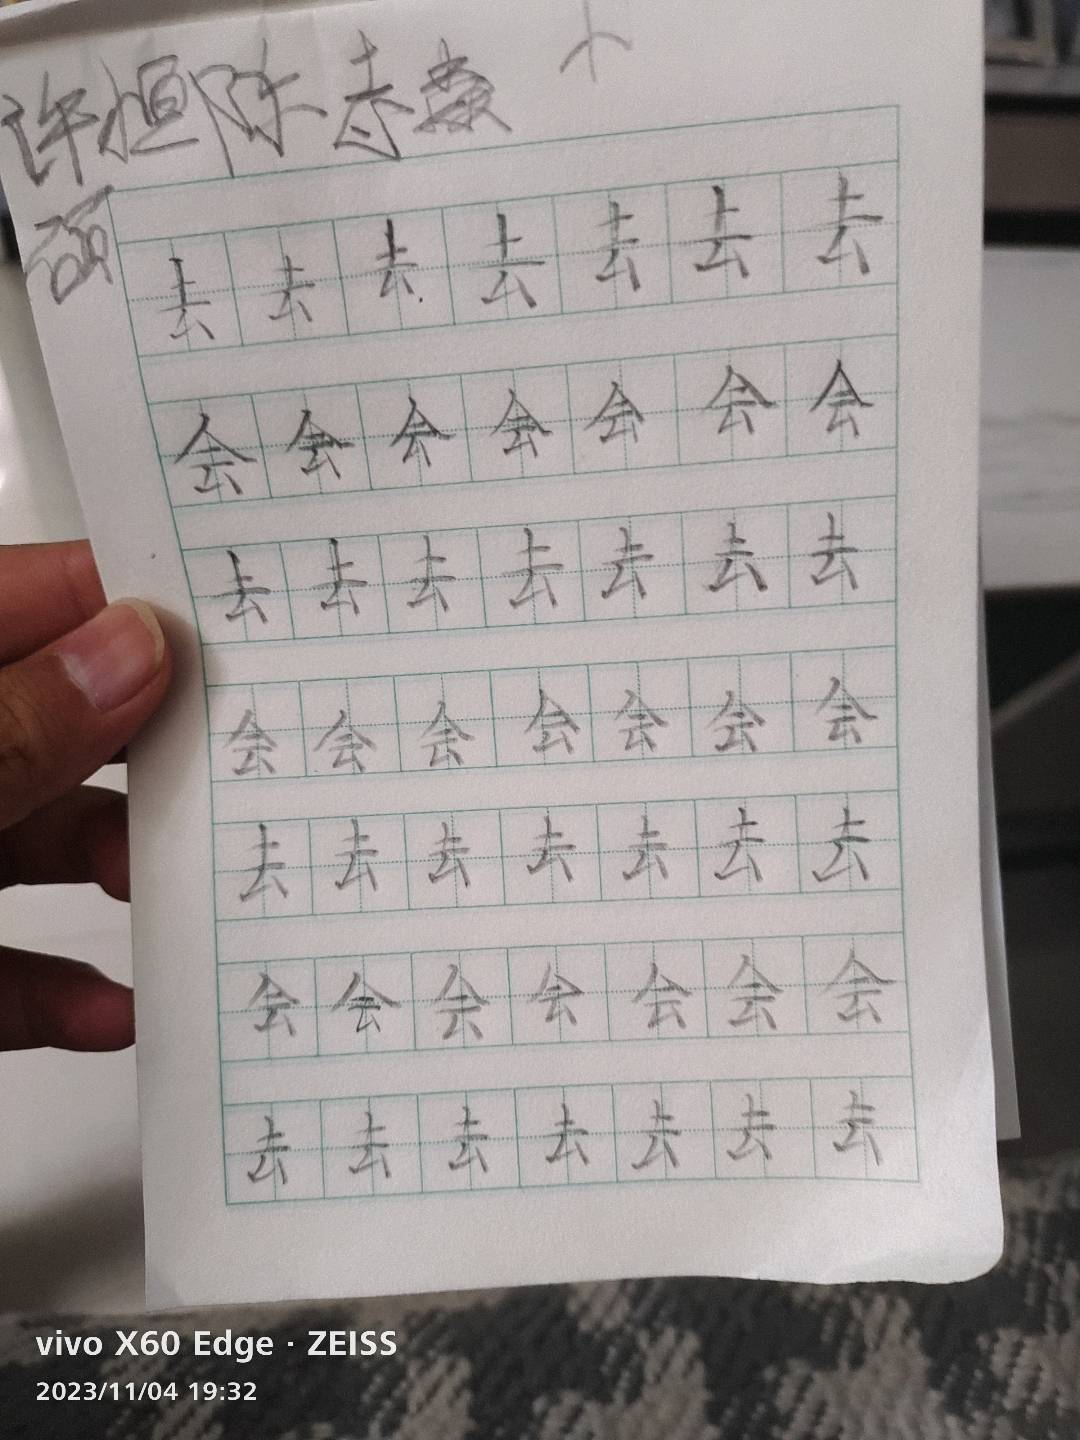 许恒陈
去去去去去去去
会会会会会会会
去去去去去去去
会会会会会会会
去去去去去去去
会会会会会会会
去去去去去去去
vivo X60 Edge · ZEISS
2023/11/04 19:32